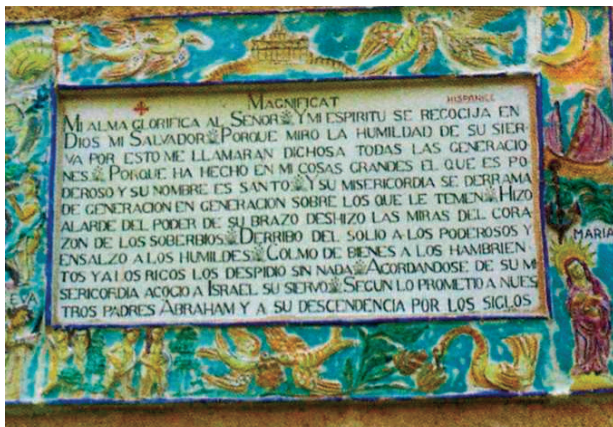 MAGNIFICAT HISPANICE
MI ALMA GLORIFICA AL SEÑOR Y MI ESPIRITU SE REGOCIJA EN
DIOS MI SALVADOR PORQUE MIRO LA HUMILDAD DE SU SIER-
VA POR ESTO ME LLAMARAN DICHOSA TODAS LAS GENERACIO-
NES PORQUE HA HECHO EN MI COSAS GRANDES EL QUE ES PO-
DEROSO Y SU NOMBRE ES SANTO Y SU MISERICORDIA SE DERRAMA
DE GENERACION EN GENERACION SOBRE LOS QUE LE TEMEN HIZO
ALARDE DEL PODER DE SU BRAZO DESHIZO LAS MIRAS DEL CORA-
ZON DE LOS SOBERBIOS DERRIBO DEL SOLIO A LOS PODEROSOS Y
ENSALZO A LOS HUMILDES COLMO DE BIENES A LOS HAMBRIEN-
TOS Y A LOS RICOS LOS DESPIDIO SIN NADA ACORDANDOSE DE SU MI
SERICORDIA ACOGIO A ISRAEL SU SIERVO SEGUN LO PROMETIO A NUES
TROS PADRES ABRAHAM Y A SU DESCENDENCIA POR LOS SIGLOS
EVA
MARIA